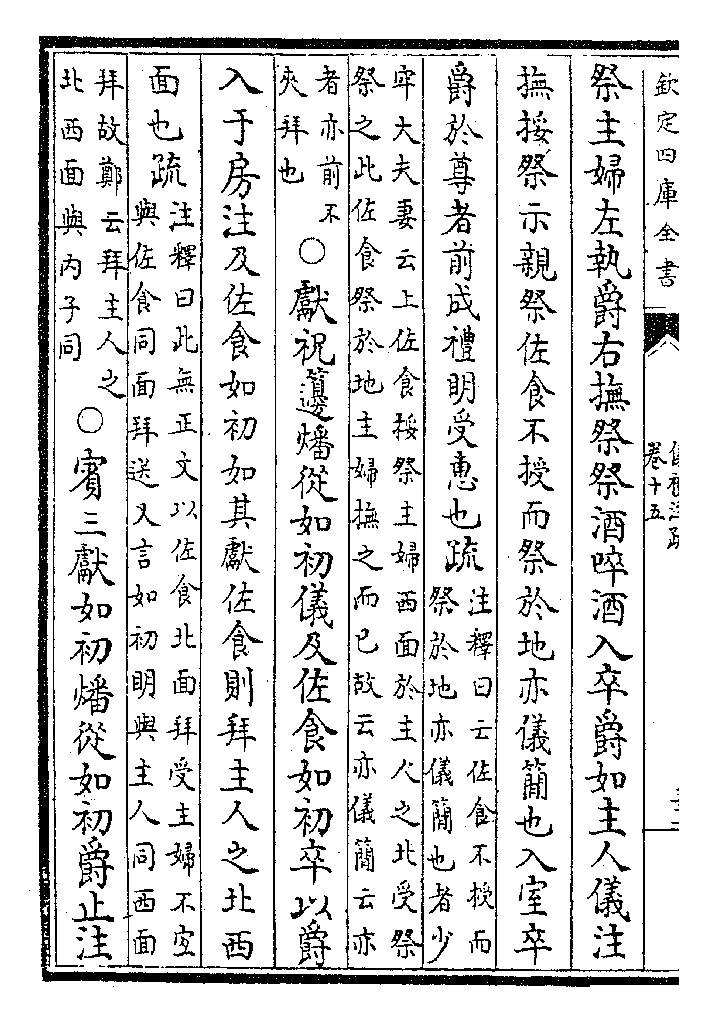 欽定四庫全書
卷十五
祭主婦左執爵右撫祭祭酒啐酒入卒爵如主人儀注
撫挼祭示親祭佐食不授而祭於地亦儀簡也入室卒
爵於尊者前成禮明受惠也疏
注釋曰云佐食不授而
祭於地亦儀簡也者少
牢大夫妻云上佐食挼祭主婦西面於主人之北受祭
祭之此佐食祭於地主婦撫之而已故云亦儀簡云亦
者亦前不
夾拜也
○獻祝籩燔從如初儀及佐食如初卒以爵
入于房注及佐食如初如其獻佐食則拜主人之北西
面也疏
注釋曰此無正文以佐食北面拜受主婦不宜
與佐食同面拜送又言如初明與主人同西面
拜故鄭云拜主人之
北西面與内子同
○賓三獻如初燔從如初爵止注